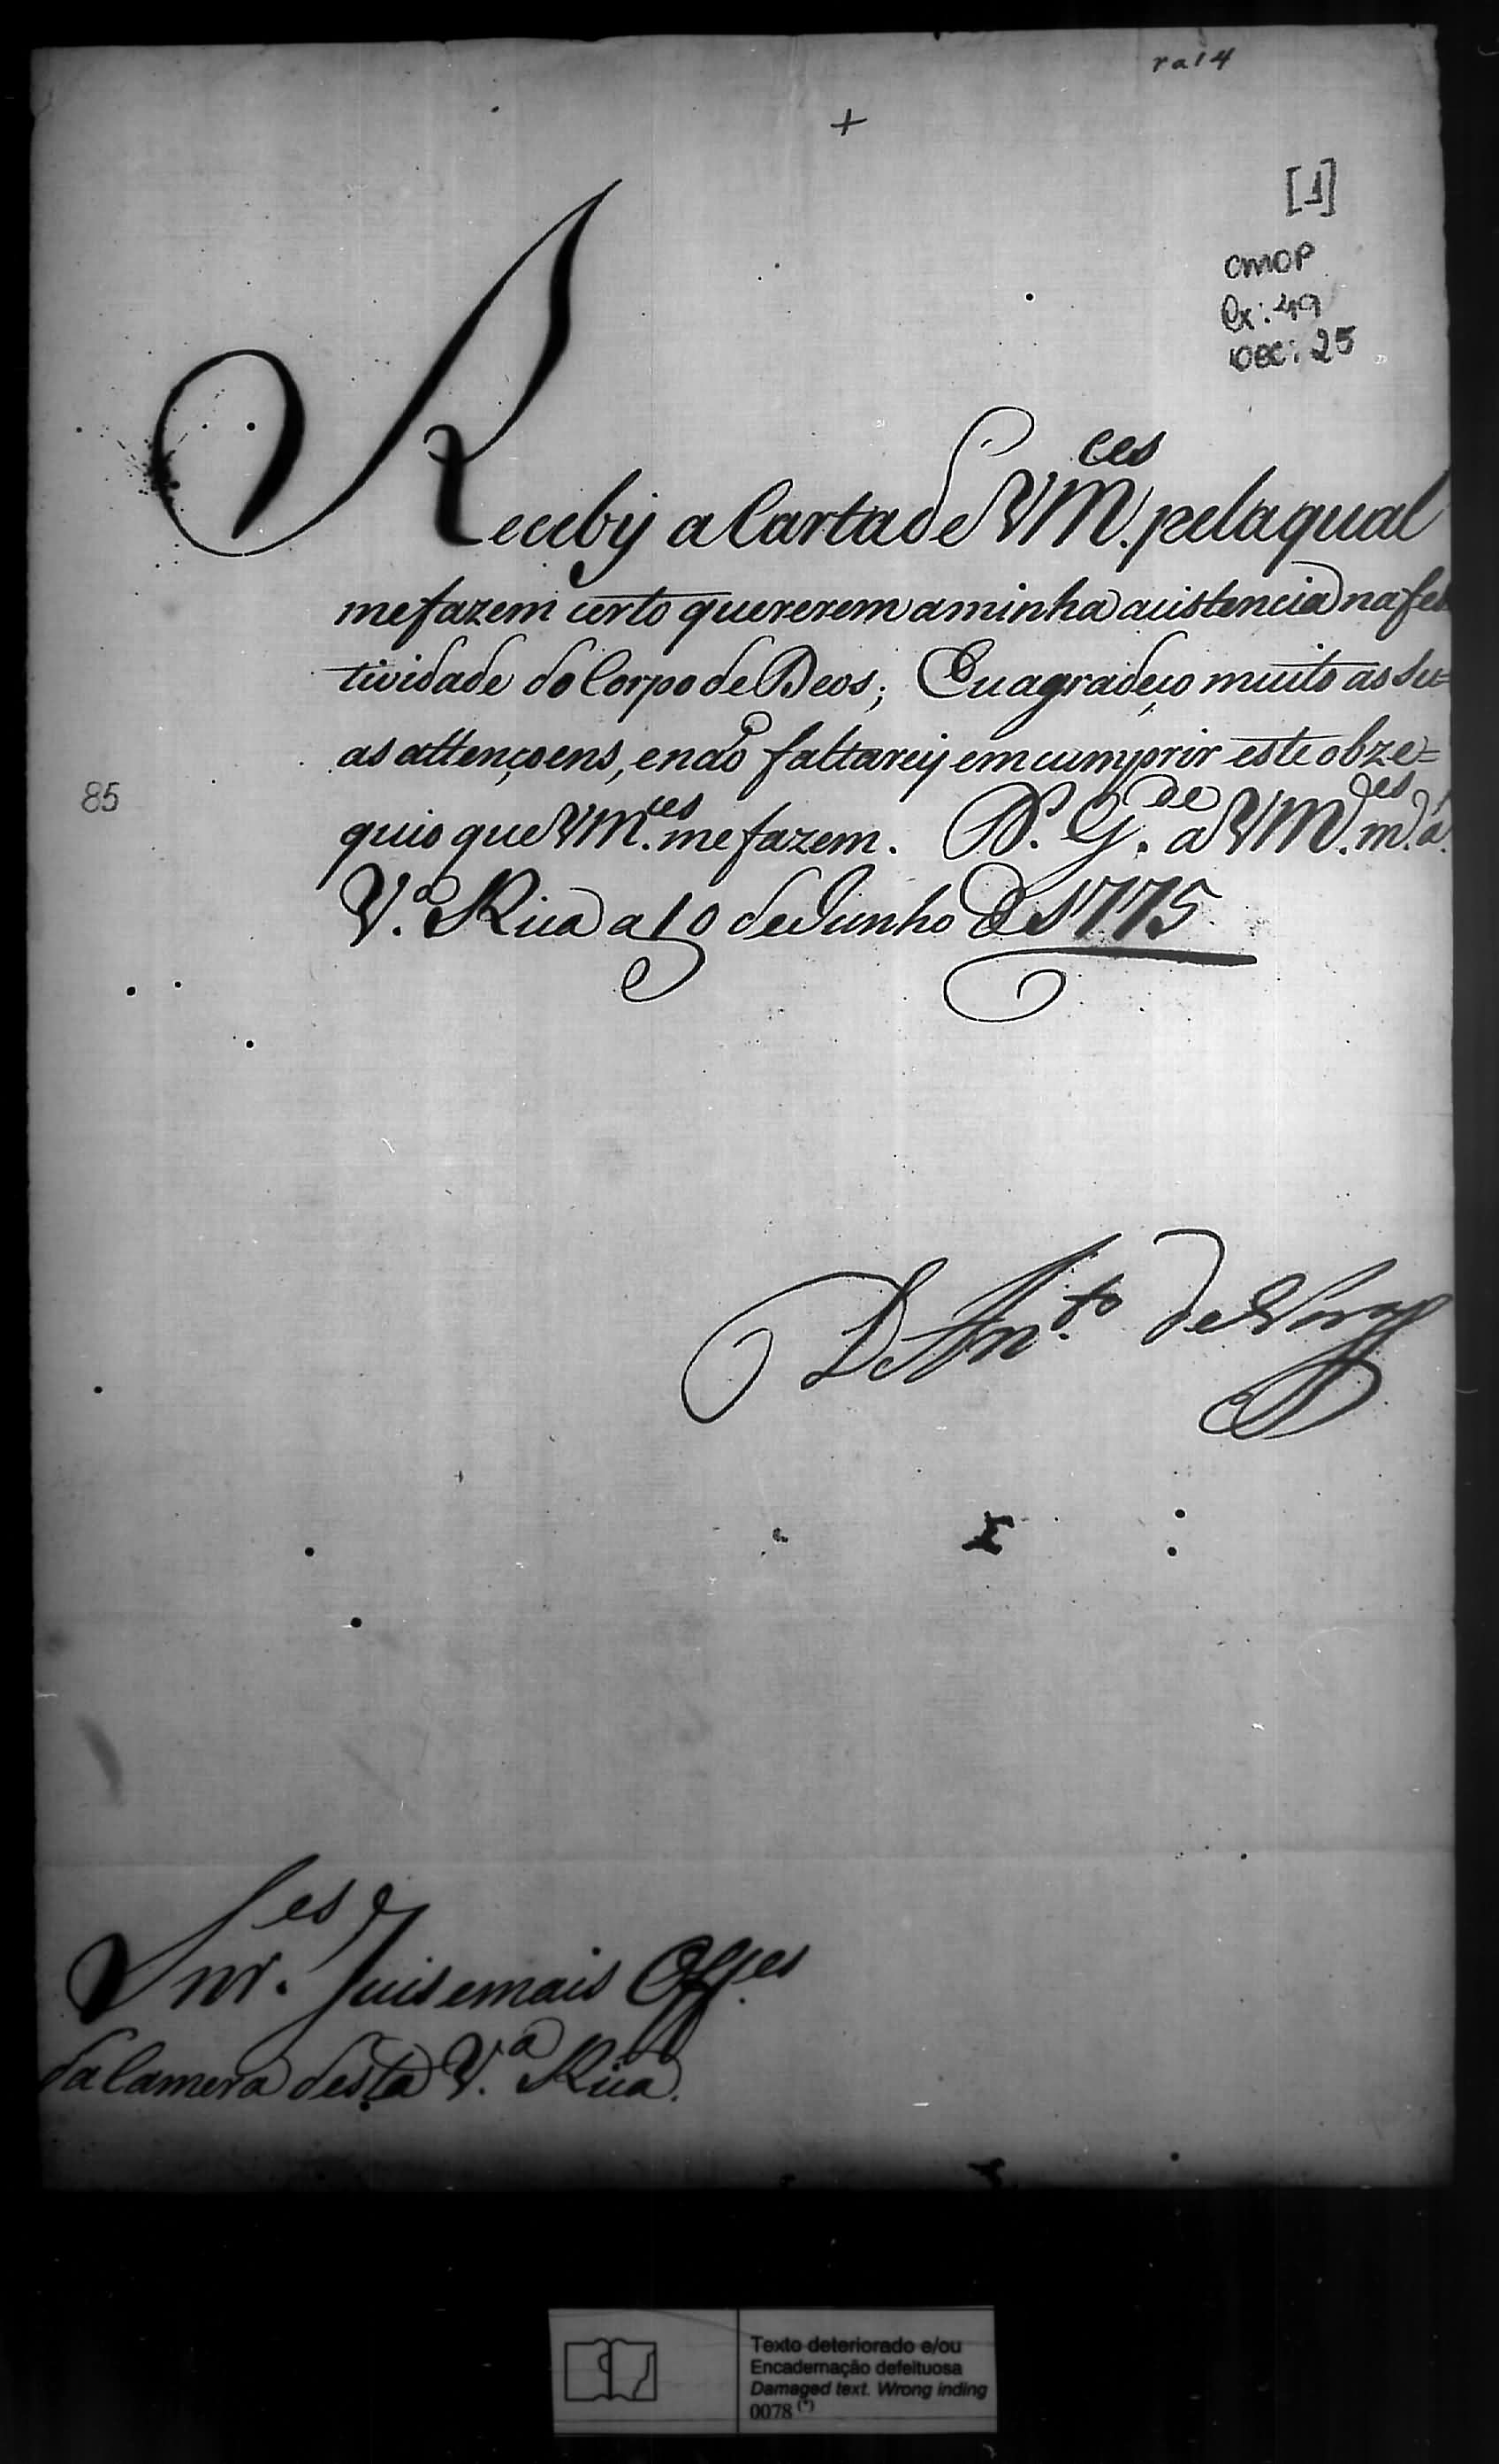 ra14
+
[1]
CMOP
Cx: 49
DOC: 25
Receby a Carta de VM.ces pela qual
me fazem certo quererem a minha acistencia na fes
tividade do Corpo de Deos; Eu agradeço muito as su=
as attençoens, e naõ faltarey em cumprir este obze=
85
quio que VM.ces me fazem. D.s G.de a VM.ces m.s a.
V.a Rica a 10 de Junho de 1775
D. Ant.o de Nor.a
Snr.es Juis e mais Off.es
da Camera desta V.a Rica.
Texto deteriorado e/ou
Encadernação defeituosa
Damaged text. Wrong inding
0078 (*)